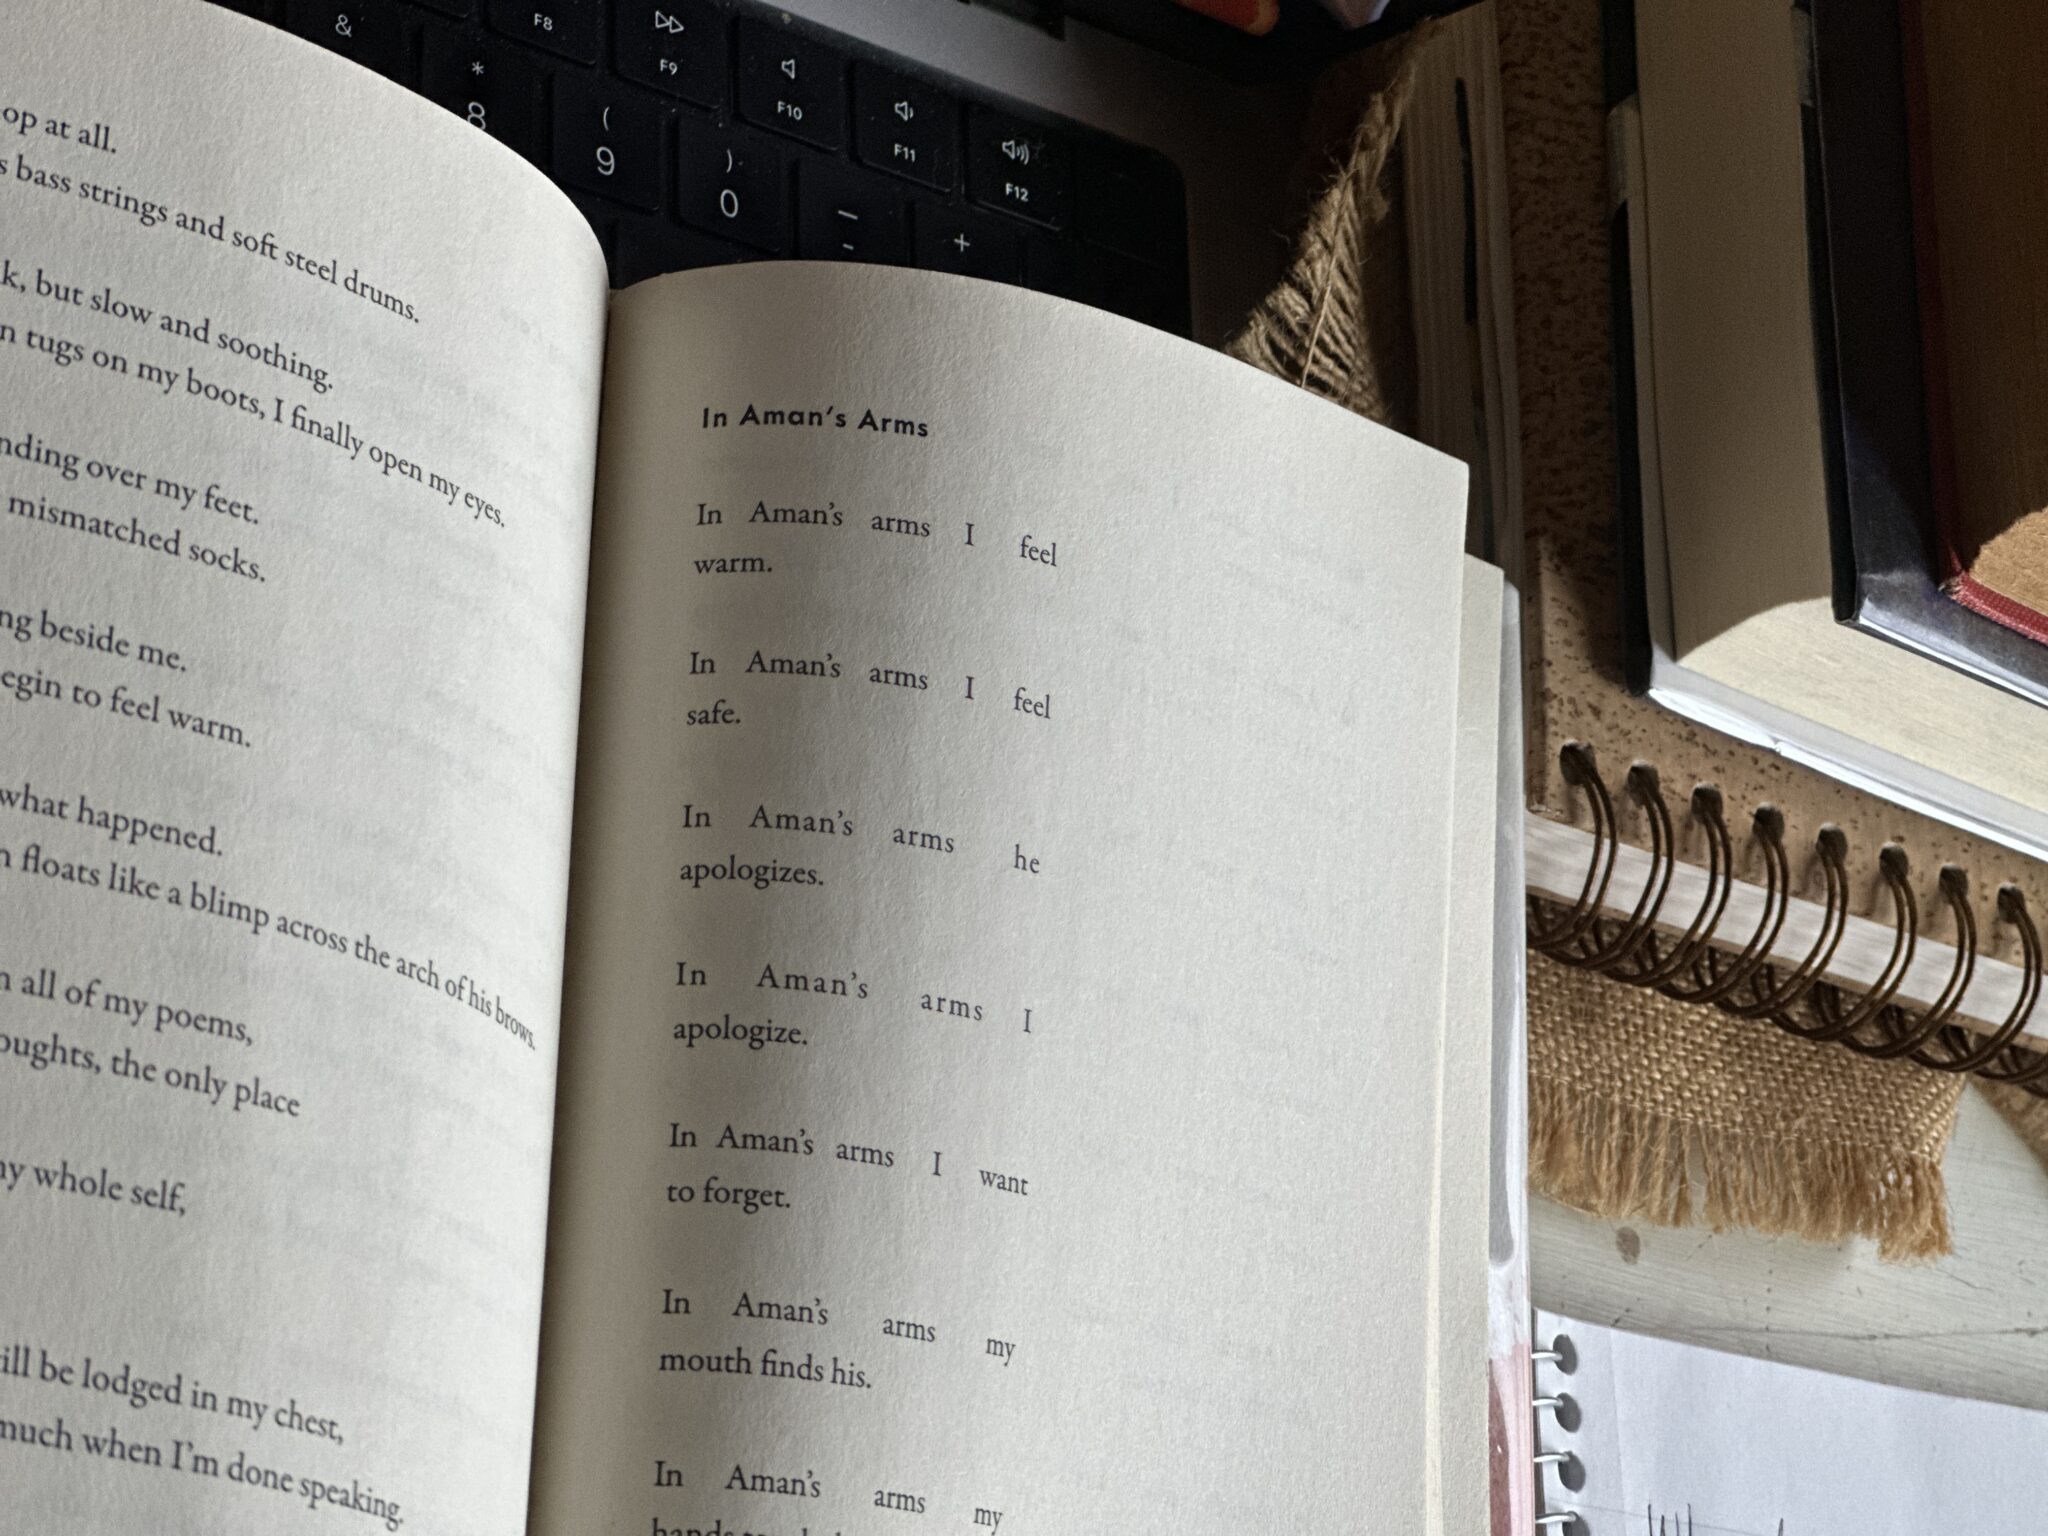 &
F8
F9
*
8
F10
(
9
F11
)
0
F12
—
-
+
at all.
bass strings and soft steel drums.
but slow and soothing.
tugs on my boots, I finally open my eyes.
over my feet.
mismatched socks.
beside me.
to feel warm.
what happened.
floats like a blimp across the arch of his brows.
all of my poems,
the only place
whole self,
be lodged in my chest,
much when I'm done speaking.
In Aman's Arms
In Aman's arms I feel
warm.
In Aman's arms I feel
safe.
In Aman's arms he
apologizes.
In Aman's arms I
apologize.
In Aman's arms I want
to forget.
In Aman's arms my
mouth finds his.
In Aman's arms my